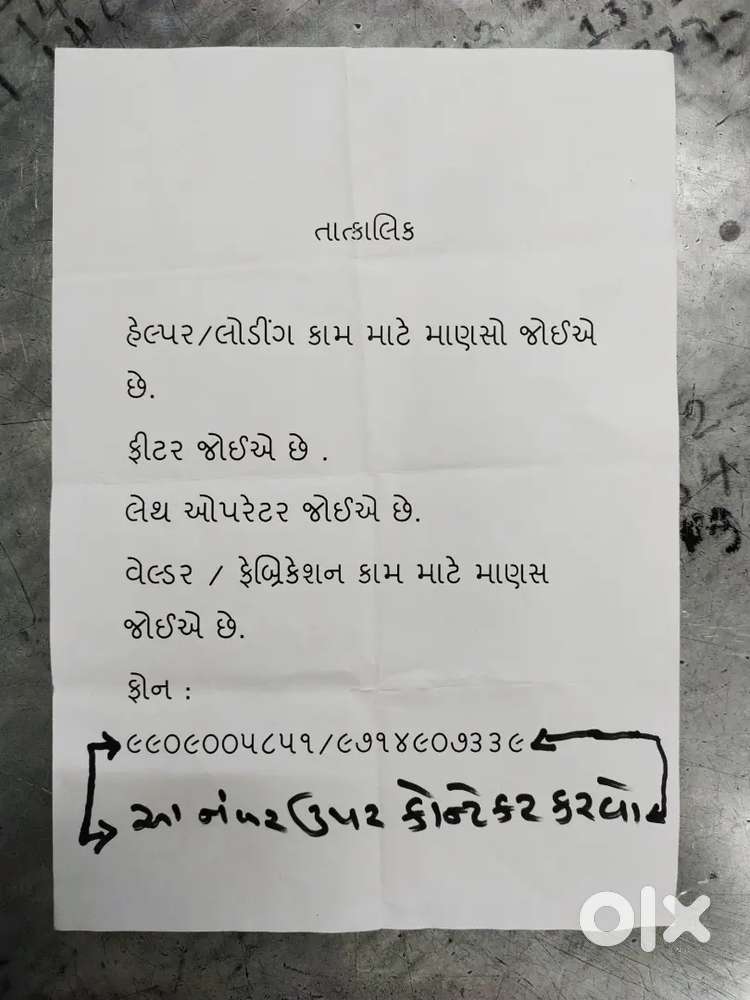 તાત્કાલિક
હેલ્પર/લોડીંગ કામ માટે માણસો જોઈએ
છે.
ફીટર જોઈએ છે .
લેથ ઓપરેટર જોઈએ છે.
વેલ્ડર / ફેબ્રિકેશન કામ માટે માણસ
જોઈએ છે.
ફોન :
૯૯૦૯૦૦૫૮૫૧/૯૭૧૪૯૦૭૩૩૯
આ નંબર ઉપર કોન્ટેકટ કરવો
olx